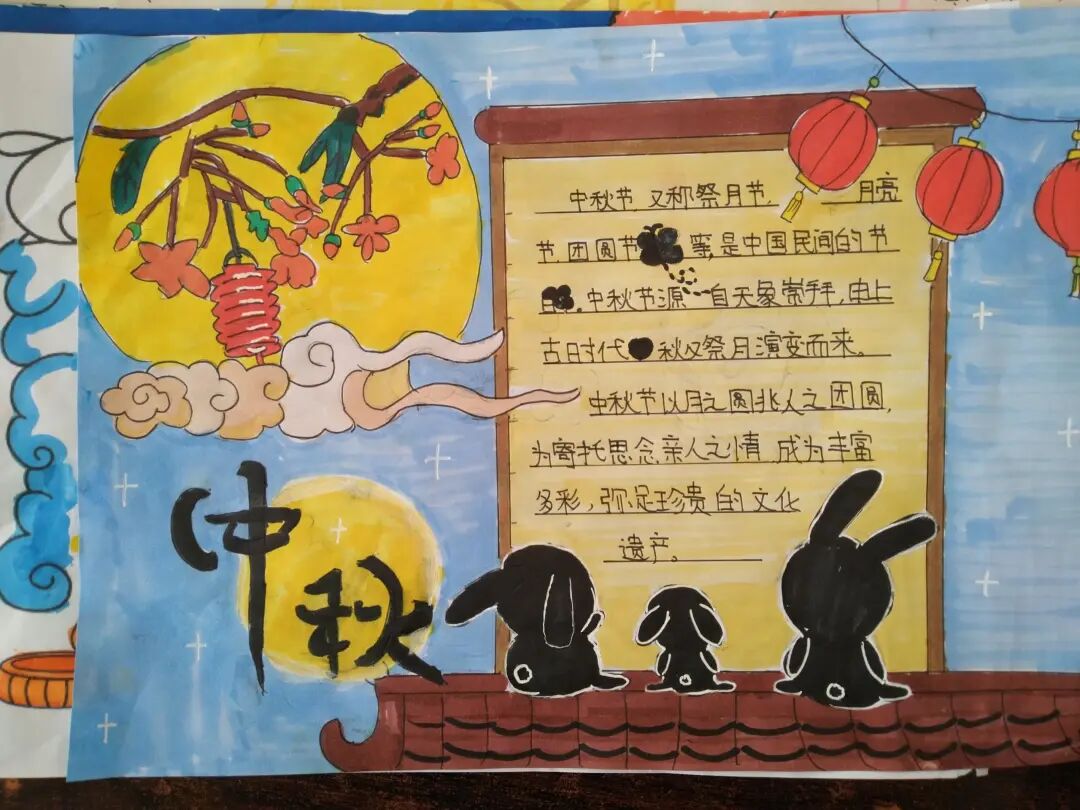 中秋
中秋节,又称祭月节, 月亮
节,团圆节 等,是中国民间的节
日。中秋节源 自天象崇拜,由上
古时代 秋夕祭月演变而来。
中秋节以月之圆兆人之团圆,
为寄托思念亲人之情 成为丰富
多彩,弥足珍贵的文化
遗产。